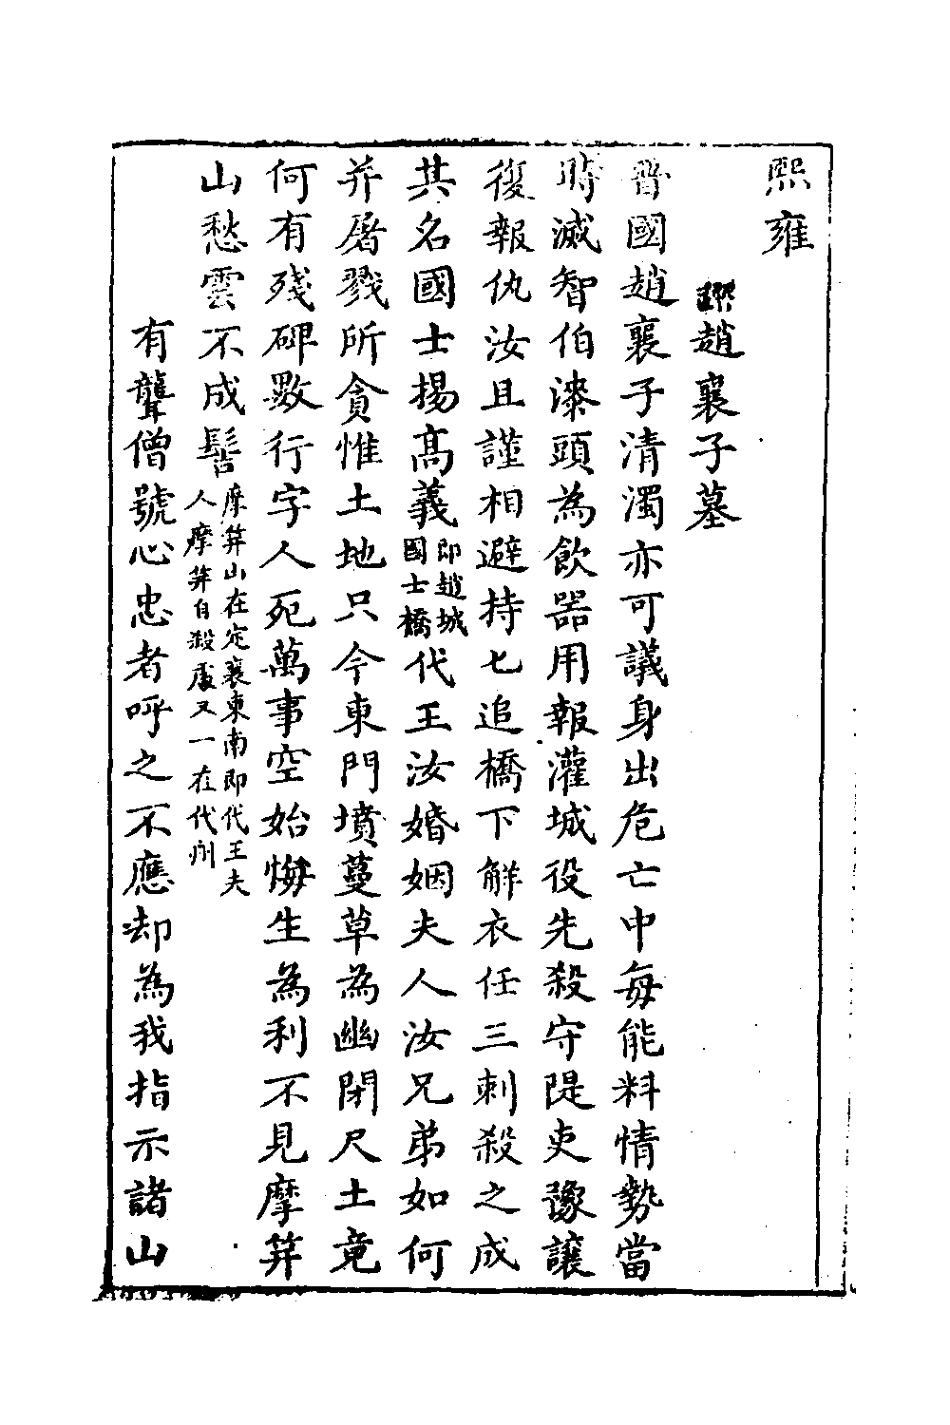 熙雍
趙襄子墓
晉國趙襄子清濁亦可議身出危亡中每能料情勢當
時滅智伯漆頭為飲器用報灌城役先殺守隄吏豫讓
復報仇汝且謹相避持匕追橋下解衣任三刺殺之成
其名國士揚高義即趙城國士橋代王汝婚姻夫人汝兄弟如何
并屠戮所貪惟土地只今東門墳蔓草為幽閉尺土竟
何有殘碑數行字人死萬事空始悔生為利不見摩笄
山愁雲不成髻摩笄山在定襄東南即代王夫人摩笄自殺處又一在代州
有聾僧號心忠者呼之不應却為我指示諸山